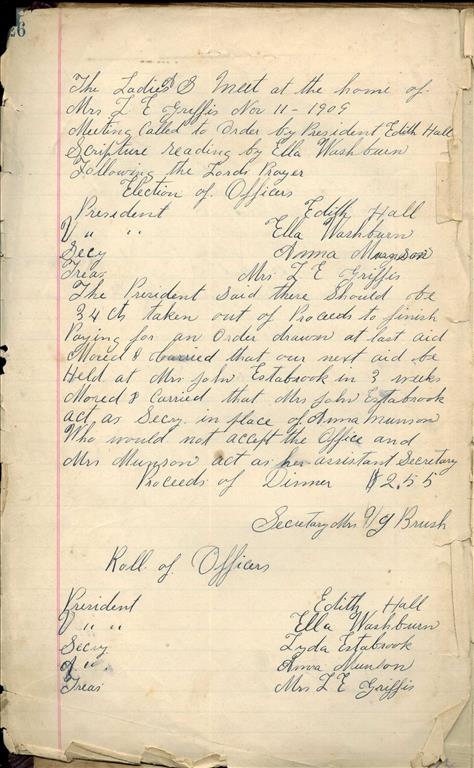 26
The Ladies S Meet at the home of
Mrs L E Griffis Nov 11 - 1909
Meeting Called to Order by President Edith Hall
Scripture reading by Ella Washburn
Following the Lords Prayer
Election of Officers
President Edith Hall
V " " Ella Washburn
Secy Anna Munson
Treas Mrs L E Griffis
The President Said there Should be
34 cts taken out of Proceeds to finish
Paying for an Order drawn at last aid
Moved & Carried that our next aid be
Held at Mrs John Estabrook in 3 weeks
Moved & Carried that Mrs John Estabrook
act as Secry. in place of Anna Munson
Who would not accept the Office and
Mrs Munson act as her assistant Secretary
Proceeds of Dinner $2.55
Secretary Mrs Brush
Roll of Officers
President Edith Hall
V " " Ella Washburn
Secry Lyda Estabrook
A " . Anna Munson
Treas Mrs L E Griffis